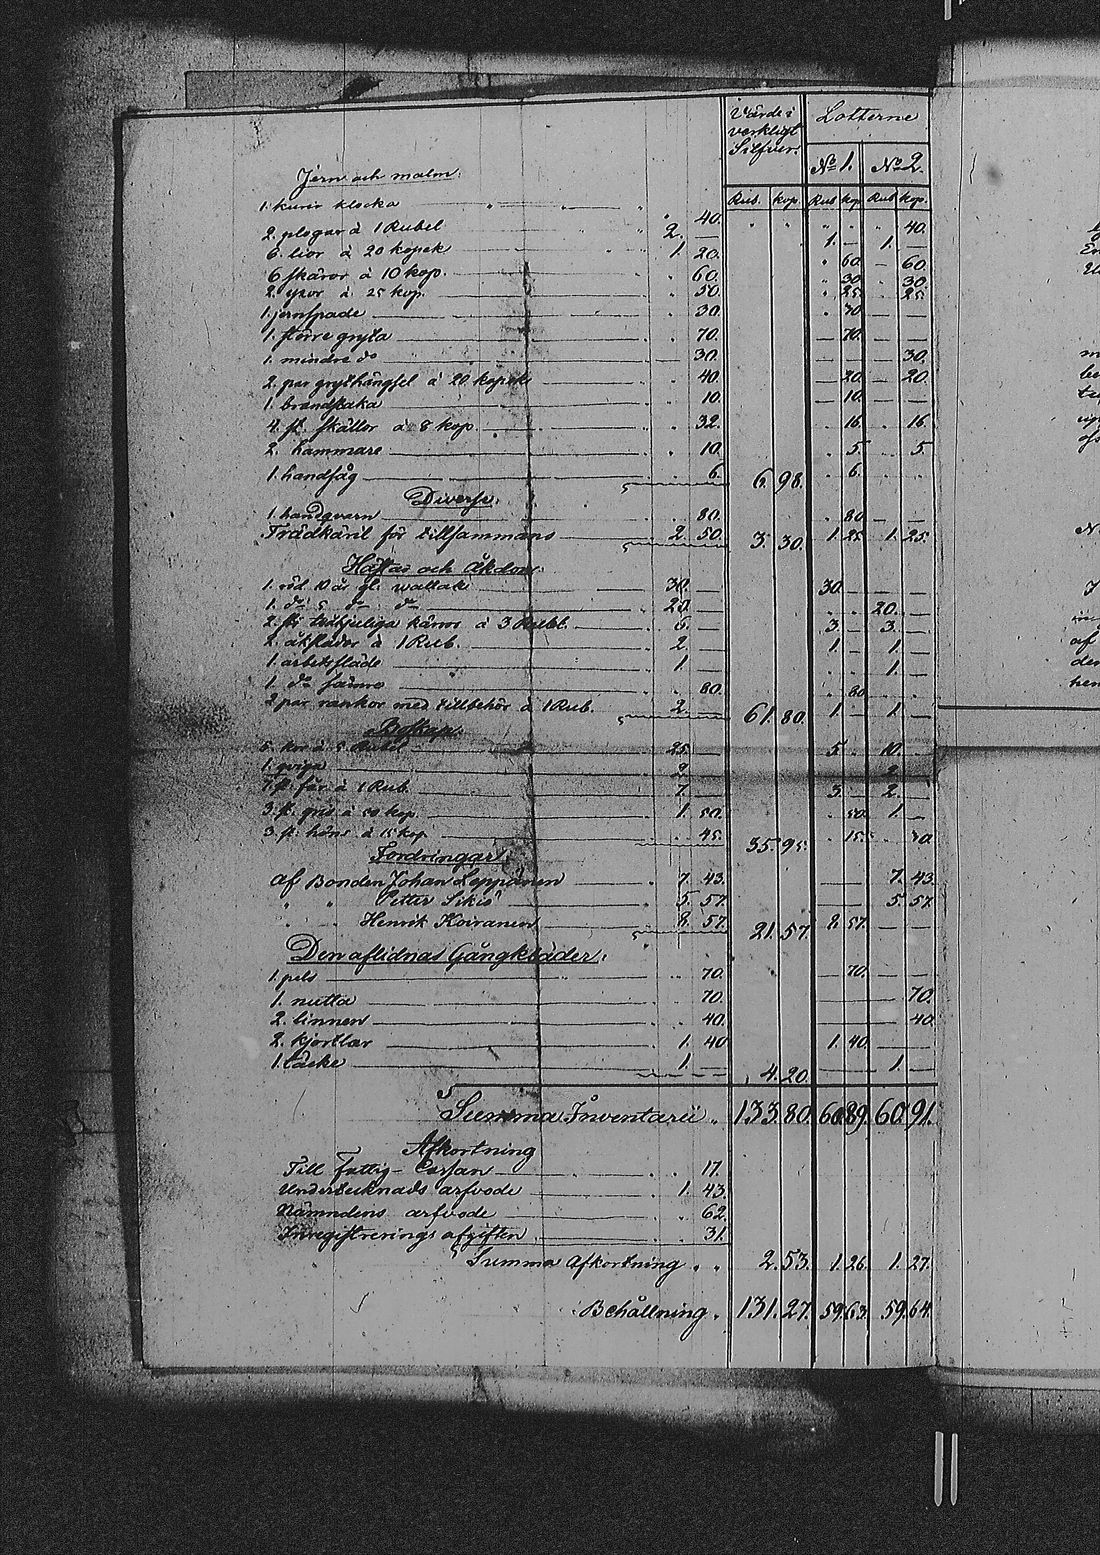 Värde i verkligt Silfver. Lotterne
No 1. No 2.
Rub. kop. Rub kop. Rub kop.
Jern och malm.
1. kurir klocka " 40. " " " " " 40.
2. plogar à 1 Rubel 2. — 1. — 1. —
6. liar à 20 kopek 1. 20. " 60. — 60.
6 skäror à 10 kop. " 60. " 30. " 30.
2. yxor à 25 kop. " 50. " 25. " 25.
1. jernspade " 30. " 30 — —
1. större gryta " 70. — 70. — —
1. mindre do — 30. — — — 30.
2. par grythängsel à 20 kopek " 40. — 20. — 20.
1. brandstaka " 10 — 10. — —
4. st. skällor à 8 kop. " 32. " 16. " 16.
2. hammare " 10. " 5. " 5.
1. handsåg " 6. 6. 98. " 6.
Diverse.
1. handqvarn " 80. " 80. — —
Trädkäril för tillsammans 2. 50. 3. 30. 1. 25. 1. 25.
Hästar och Åkdon.
1. röd 10 år gl. wallak 30. — 30. —
1. do 5 do do 20. — " " 20. —
2. st. tvåhjuliga kärror à 3 Rubl. 6. — 3. — 3. —
2. åkslädor à 1 Rub. 2. — 1. — 1. —
1. arbetssläde 1. — " " 1. —
1. do sämre " 80. " 80.
2 par rankor med tillbehör à 1 Rub. 2. — 61. 80. 1. — 1. —
Boskap.
5. kor à 5 Rubel 25. — 5. " 10. —
1. qviga 2. — 2. —
7. st. får à 1 Rub. 7. — 3. — 2. —
3. st. gris à 50 kop. 1. 50. " 50. 1. —
3. st. höns à 15 kop. " 45. 35. 95. " 15. " 30.
Fordringar.
af Bonden Johan Leppänen 7. 43. — 7. 43.
" " Petter Sikiö 5. 57. — 5. 57.
" " Henrik Koiranen 8. 57. 21. 57. 8. 57. — —
Den aflidnas Gångkläder.
1. pels " 70. — 70. — —
1. nutta " 70. — 70.
2. linnen " 40. — 40.
2. kjortlar 1. 40 1. 40. —
1. täcke 1. — 4. 20. — 1. —
Summa Inventarii " 133. 80. 60. 89. 60. 91.
Afkortning
Till Fattig-Cassan " 17.
Undertecknads arfvode 1. 43.
Nämndens arfvode " 62.
Inregistrerings afgiften " 31.
Summa Afkortning " " 2. 53. 1. 26. 1. 27.
Behållning " 131. 27. 59. 63. 59. 64.